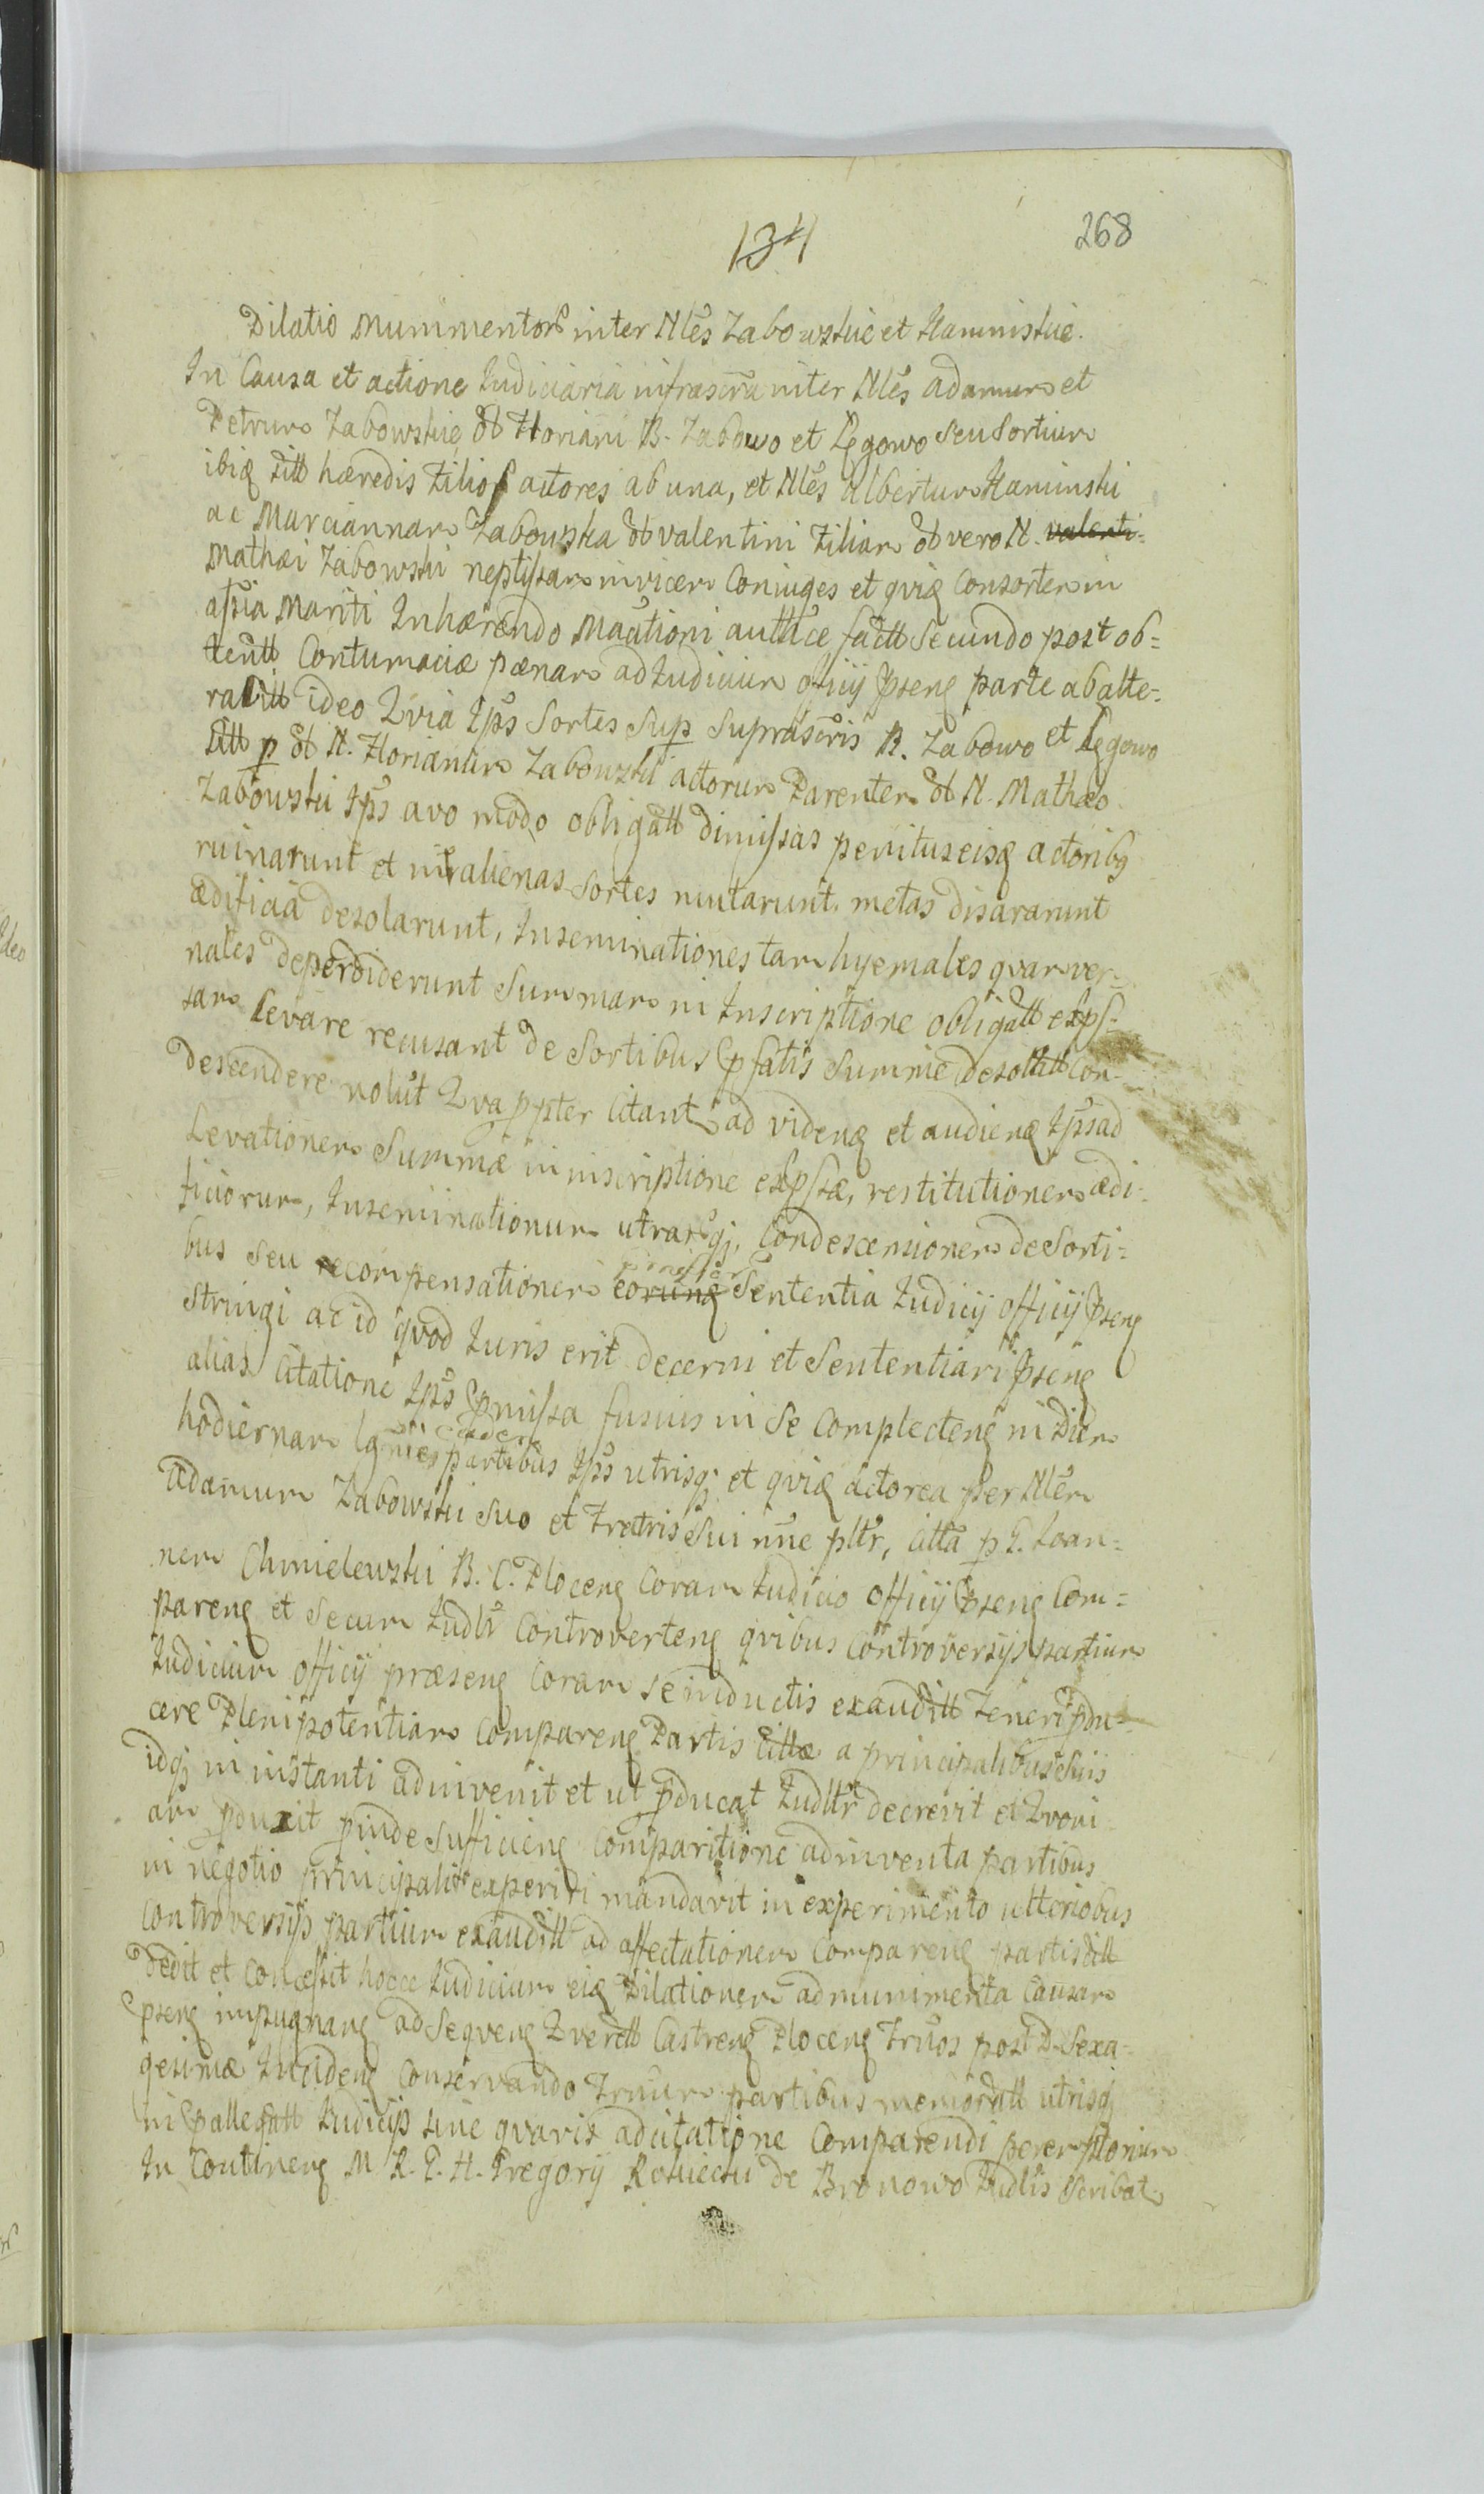 134
268
Dilatio Munimentor inter Nles Zabowskie et Kaminskie.
In Causa et actione Iudiciaria infrascra inter Nles Adamum et
Petrum Zabowskie olt Floriani B. Zabowo et Łęgowo seu Sortium
ibiq sitt hæredis Filios actores ab una, et Nles Albertum Kaminski
ac Mariannam Zabowska olt Valentini Filiam olt vero N. Valenti-
Mathæi Zabowski neptissam invicem Coniuges et qviq Consortem in
assia Mariti Inhærendo Maationi authce factt Secundo post ob-
tentt Contumaciæ pænam ad Iudicium officij psenq parte ab alte-
ra Citt ideo Qvia Ips Sortes sup suprascris B. Zabowo et Łęgowo
sitt p olt N. Florianum Zabowski actorum Parentem olt N. Mathæo
Zabowski Ips avo modo obligatt dimissas penitus eisq actoribq
ruinarunt et in alienas Sortes mutarunt, metas disararunt
ædificia desolarunt, Inseminationes tam hyemales qvam ver-
nales deperdiderunt Summam in Inscriptione obligatt exps-
sam Levare recusant de Sortibus pfatis Summe desollatt Con-
descendere nolut Qva ppter Citant ad videnq et audienq Ips ad
Levationem Summæ in inscriptione expssæ, restitutionem ædi-
ficiorum, Inseminationum utrarqj, Condescensionem de Sorti-
bus seu recompensationem eorunq Sententia Iudicij officij psenq
stringi ac id qvod Iuris erit decerni et Sententiari psenq
alias Citatione Ips pmissa fusius in se Complectenq in Diem
hodiernam
in eadem
partibus Ips utrisqj et qviq actorea per Nlem
Adamum Zabowski suo et Fratris sui nne pltr, Citta p G. Ioan-
nem Chmielewski B. C. Plocenq Coram Iudicio officij psenq Com-
parenq et secum Iudlr Controvertenq qvibus Controversijs partium
Iudicium officij præsenq Coram se inductis exauditt Teneri pdu-
cere Plenipotentiam Comparenq Partis Cittæ a principalibus suis
idqj in instanti adinvenit et ut pducat Iudltr decrevit et Qvoni
am pduxit pinde Sufficienq Comparitione adinventa partibus
in negotio principali experiri mandavit in experimento ulteriobus
Controversijs partium exauditt ad affectationem Comparenq partis Citt
Dedit et Concessit hocce Iudicium eiq Dilationem ad munimenta Causam
psenq impugnanq ad Seqvenq Qverell Castrenq Plocenq Fruos post D. Sexa-
gesimæ Incidenq Conservando Trnum partibus memoratt utrisqj
in pallegatt Iudicijs sine qvavis adcitatione Comparendi peremptorium
In Continenq M. R. G. H. Gregorij Rościecki de Bronowo Iudlis Scribat